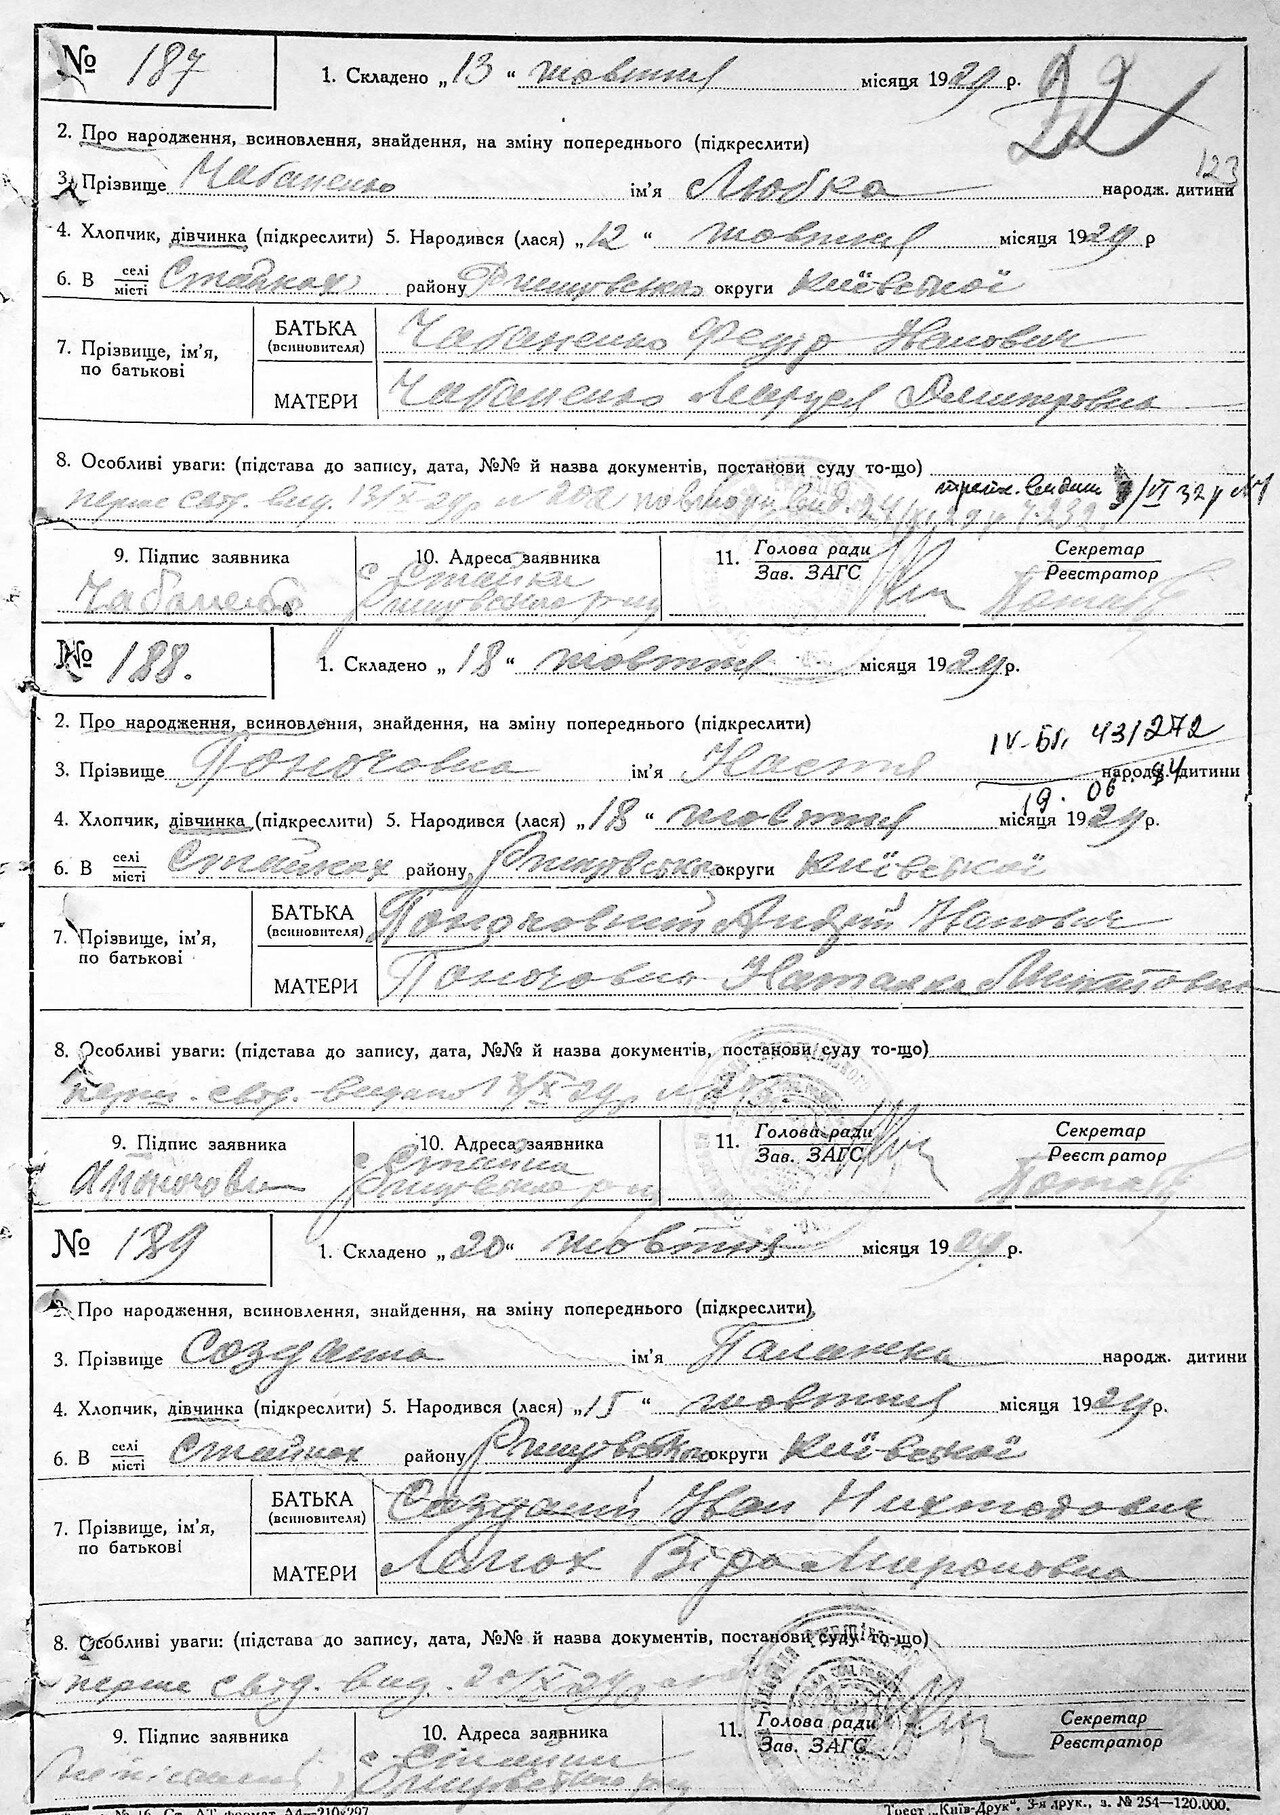 № 187
1. Складено „13“ жовтня місяця 1929 р.
22
2. Про народження, всиновлення, знайдення, на зміну попереднього (підкреслити)
123
3. Прізвище Чабаненко ім'я Любка народж. дитини
4. Хлопчик, дівчинка (підкреслити) 5. Народився (лася) „12“ жовтня місяця 1929 р
6. В селі місті Стайках району Ржищівсько округи Київської
7. Прізвище, ім'я, по батькові
БАТЬКА (всиновителя) Чабаненко Федір Іванович
МАТЕРИ Чабаненко Маруся Дмитровна
8. Особливі уваги: (підстава до запису, дата, №№ й назва документів, постанови суду то-що)
перше свід. вид. 13/X 29 р. № 202 повторн. вид. 24/
3/VI 32 р №1
9. Підпис заявника
10. Адреса заявника
11. Голова ради Зав. ЗАГС
Секретар Реєстратор
Чабаненко
с Стайки
Ржищівського р-ну
№ 188.
1. Складено „18“ жовтня місяця 1929 р.
2. Про народження, всиновлення, знайдення, на зміну попереднього (підкреслити)
IV-БК 431272
3. Прізвище Поночовна ім'я Настя народж. дитини
19. 06. 84
4. Хлопчик, дівчинка (підкреслити) 5. Народився (лася) „18“ жовтня місяця 1929 р.
6. В селі місті Стайках району Ржищівсько округи Київської
7. Прізвище, ім'я, по батькові
БАТЬКА (всиновителя) Поночовний Андрій Іванович
МАТЕРИ Поночовна Наталка Микитовна
8. Особливі уваги: (підстава до запису, дата, №№ й назва документів, постанови суду то-що)
перш. свід. видано 18/X 29 р №
9. Підпис заявника
10. Адреса заявника
11. Голова ради Зав. ЗАГС
Секретар Реєстратор
с Стайки
Ржищівського р-ну
№ 189
1. Складено „20“ жовтня місяця 1929 р.
2. Про народження, всиновлення, знайдення, на зміну попереднього (підкреслити)
3. Прізвище Созданна ім'я Палажка народж. дитини
4. Хлопчик, дівчинка (підкреслити) 5. Народився (лася) „15“ жовтня місяця 1929 р.
6. В селі місті Стайках району Ржищівсько округи Київської
7. Прізвище, ім'я, по батькові
БАТЬКА (всиновителя) Созданий Іван Нихтодович
МАТЕРИ Лемох Віра Мироновна
8. Особливі уваги: (підстава до запису, дата, №№ й назва документів, постанови суду то-що)
перше свід. вид. 20/X 29 р
9. Підпис заявника
10. Адреса заявника
11. Голова ради Зав. ЗАГС
Секретар Реєстратор
с Стайки
Ржищівського р-ну
Трест „Київ-Друк“, 3-я друк., з. № 254—120.000.